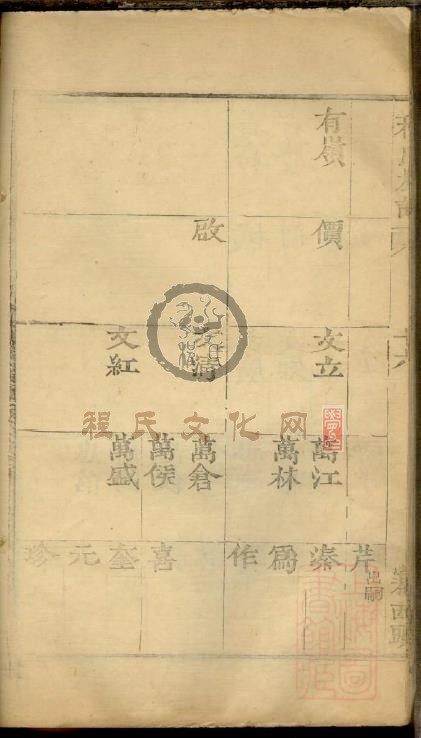 有嶺
價
啟
文立
文清
文紅
萬江
萬林
萬倉
萬侯
萬盛
芹
溱
爲
作
喜
奎
元
珍
程氏文化网